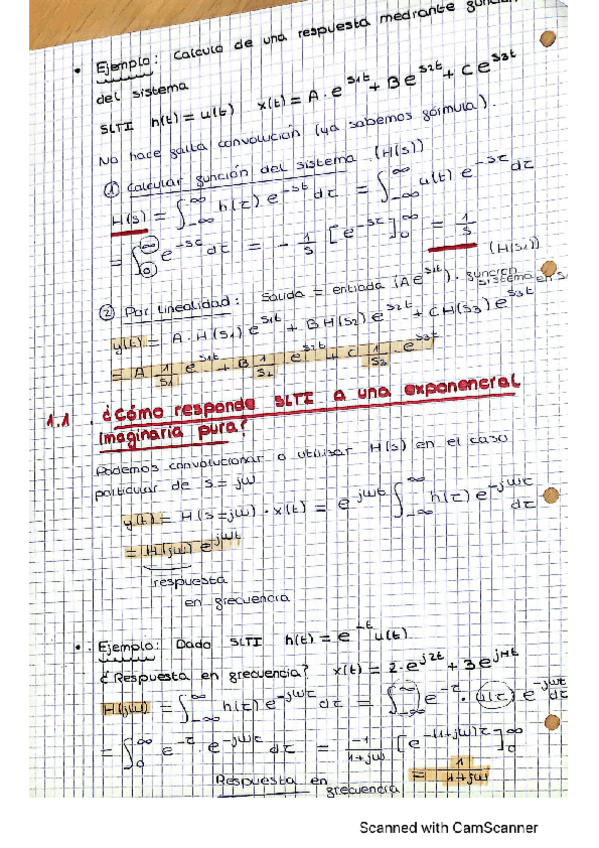 • Ejemplo: Calculo de una respuesta mediante
del sistema
SLTI h(t) = u(t) x(t) = A·e^{s1t} + Be^{s2t} + Ce^{s3t}
No hace falta convolución (ya sabemos fórmula).
① Calcular función del sistema (H(s))
H(s) = ∫_{-∞}^{∞} h(τ) e^{-sτ} dτ = ∫_{-∞}^{∞} u(τ) e^{-sτ} dτ
= ∫_{0}^{∞} e^{-sτ} dτ = - 1/s [e^{-sτ}]_{0}^{∞} = 1/s
(H(s1))
② Por linealidad: Salida = entrada (Ae^{s1t}) · función sistema en s
y(t) = A·H(s1) e^{s1t} + BH(s2) e^{s2t} + CH(s3) e^{s3t}
= A 1/s1 e^{s1t} + B 1/s2 e^{s2t} + C 1/s3 · e^{s3t}
1.1. ¿Cómo responde SLTI a una exponencial
imaginaria pura?
Podemos convolucionar o utilizar H(s) en el caso
particular de s = jω
y(t) = H(s=jω) · x(t) = e^{jωt} ∫_{-∞}^{∞} h(τ) e^{-jωτ} dτ
= H(jω) e^{jωt}
respuesta
en frecuencia
• Ejemplo: Dado SLTI h(t) = e^{-t} u(t)
¿Respuesta en frecuencia? x(t) = 2·e^{j2t} + 3e^{j4t}
H(jω) = ∫_{-∞}^{∞} h(τ) e^{-jωτ} dτ = ∫_{-∞}^{∞} e^{-τ} · u(τ) e^{-jωτ} dτ
= ∫_{0}^{∞} e^{-τ} · e^{-jωτ} dτ = -1/1+jω [e^{-(1+jω)τ}]_{0}^{∞}
= 1/1+jω
Respuesta en
frecuencia
Scanned with CamScanner